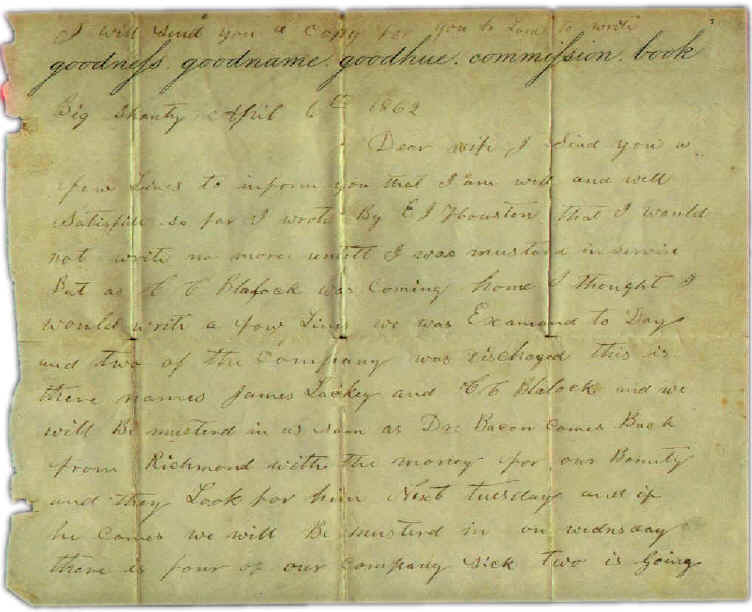 I will Send you a Copy for you to Learn to write
goodness. goodname. goodhue. commission. book
Big Shanty April 6th 1862
Dear wife I Send you a
few Lines to inform you that I am well and well
Satisfide so far I wrote By E J Houston that I would
not write no more untill I was musterd in servis
But as H C Blalock was Coming home I thought I
would write a few Lines we was Examand to Day
and two of the Company was discharged this is
there names James Lackey and H C Blalock and we
will Be musterd in as soon as Dr Bacon Comes Back
from Richmond with the money for our Bounty
and they Look for him Next tuesday and if
he Comes we will Be musterd in on wednsday
there is four of our Company Sick two is going